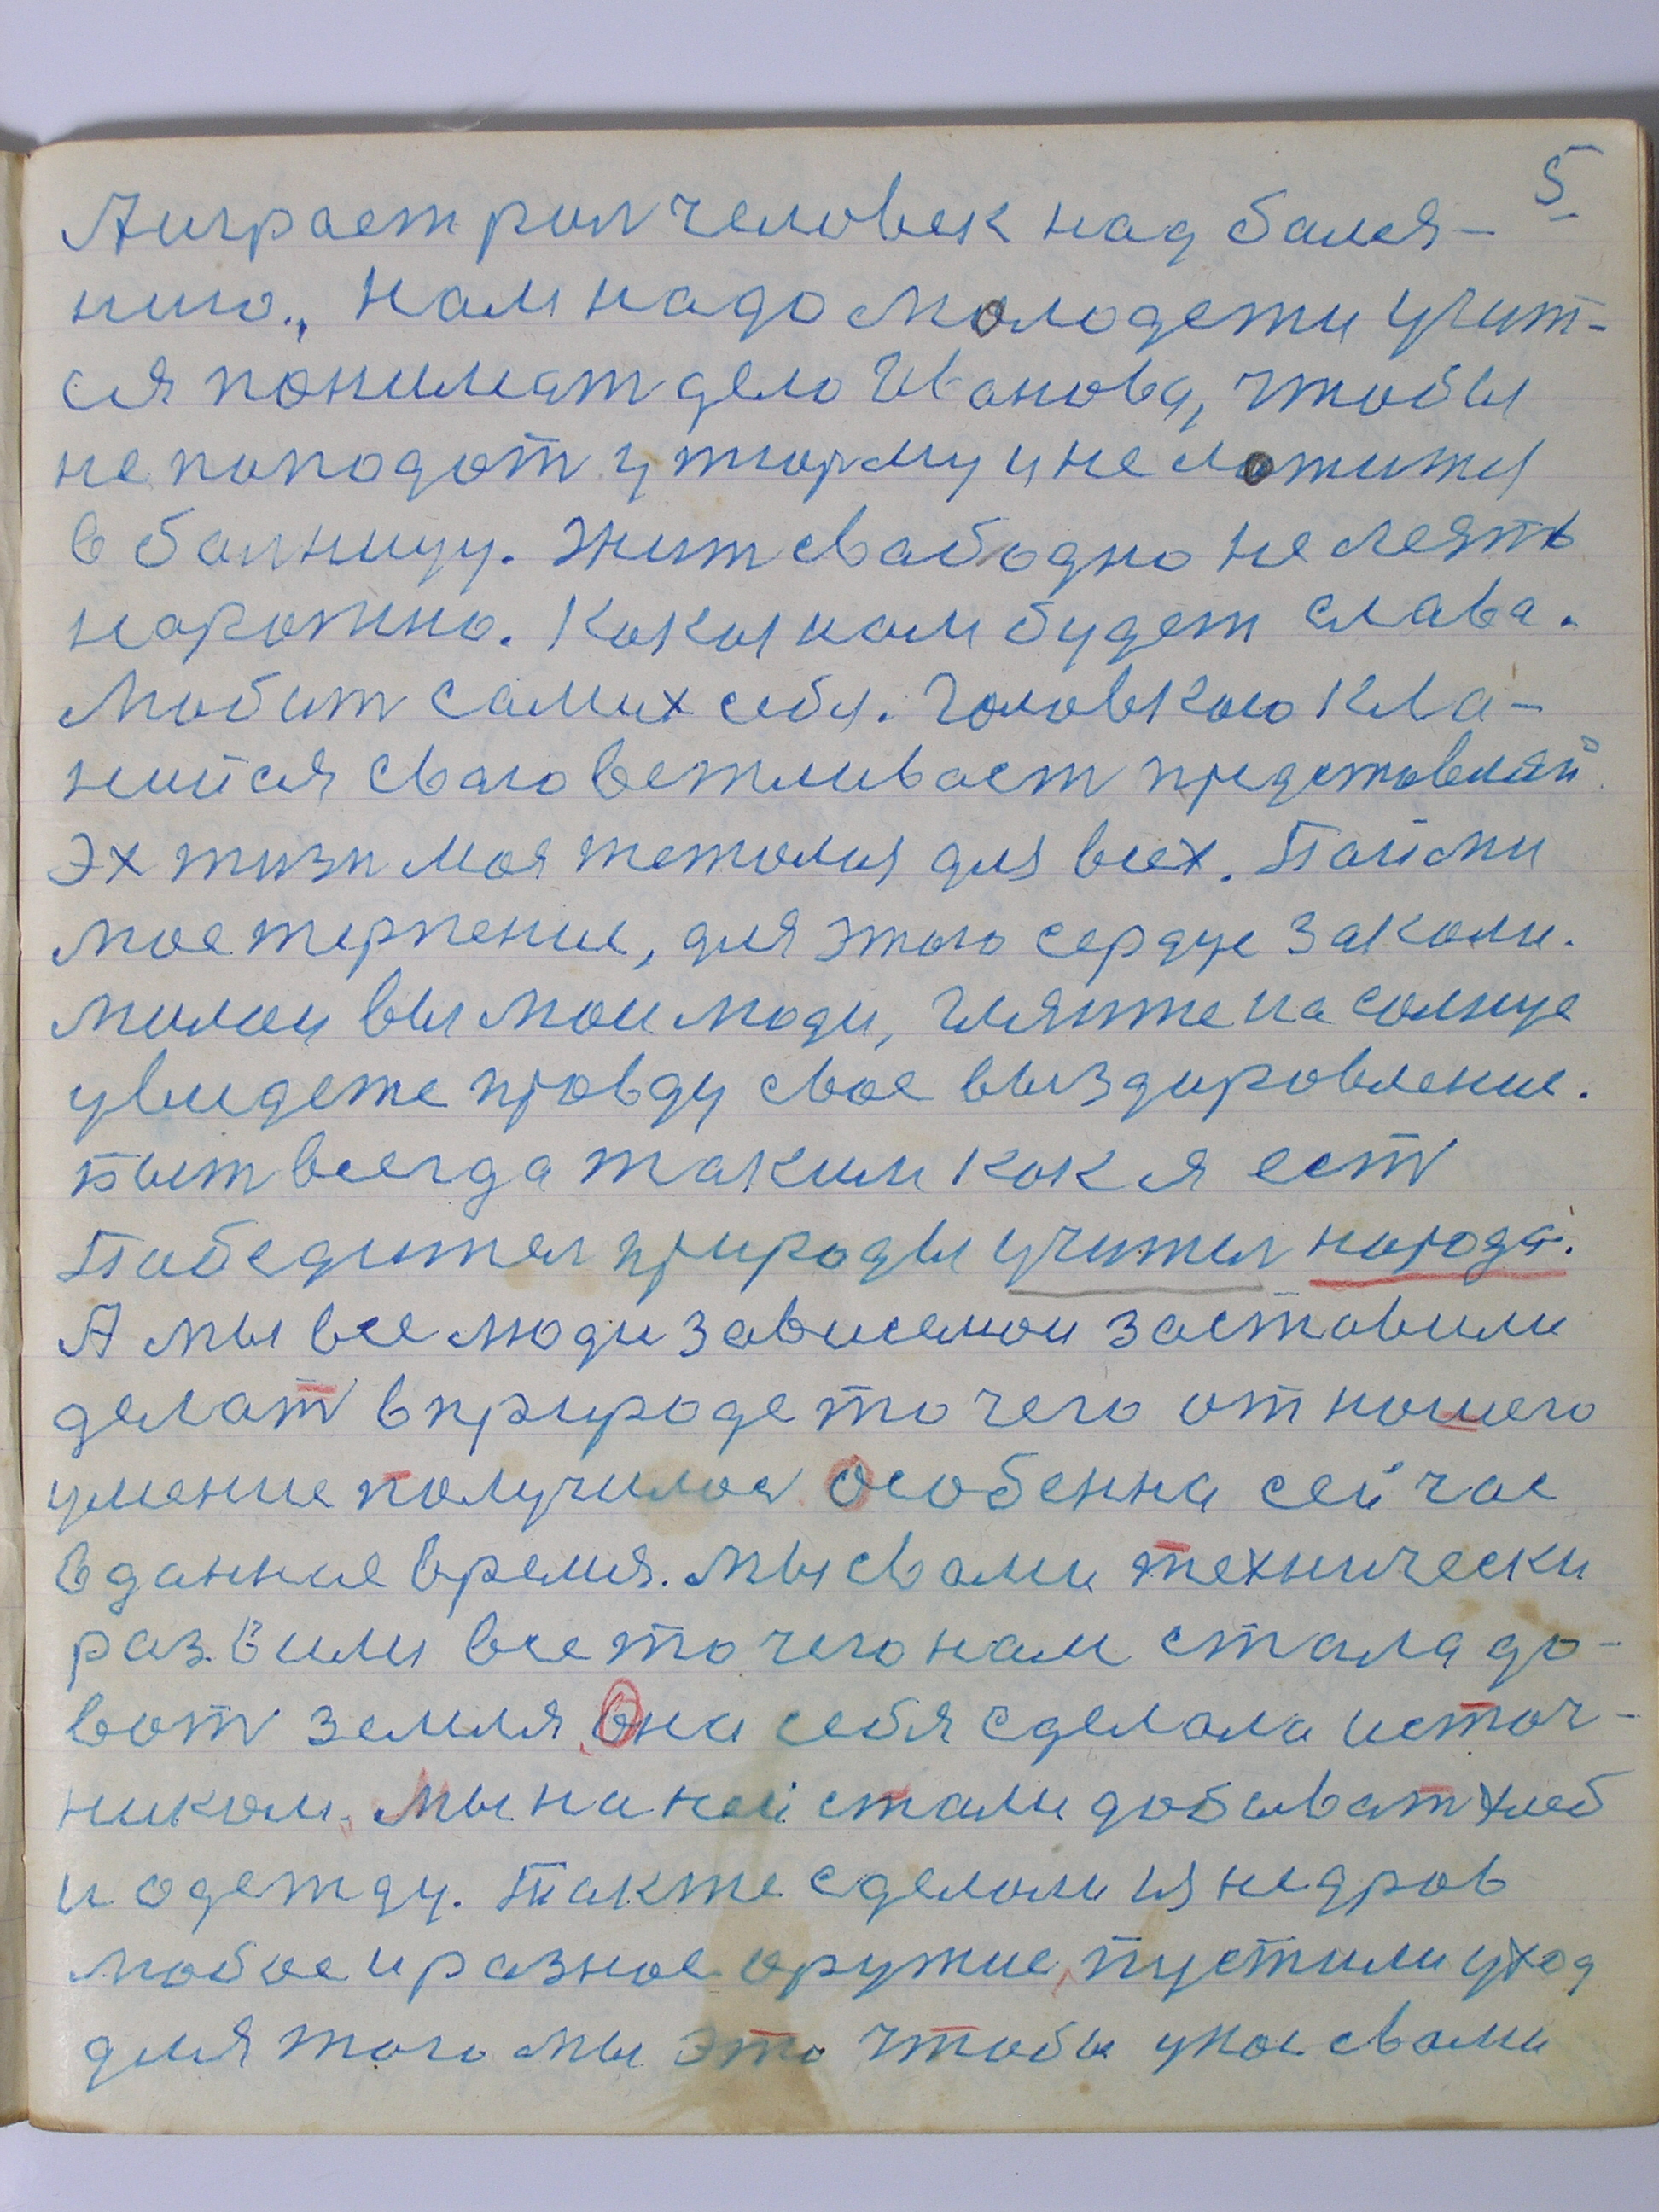 5
А играет рол человек над балея-
нию., нам надо молодежи учит-
ся понимат дело Иванова, чтобы
не пападат у тюрму и не ложится
в балницу. Жит свабодно не леять
нарожно. Какая нам будет слава.
Любит самих себя. Головкою кла-
нийся сваю вежливаст представляй.
Эх жизн моя тежолая для всех. Пайми
мое терпение, для этого сердце закали.
милаи вы маи люди, глянте на солнце
увидете правду свае выздировление.
Быт всегда таким как я ест
Пабедител природы учител народа.
А мы все люди зависемаи заставили
делат в природе то чего от нашего
умение получилос Особенна сейчас
в даннае время. мы с вами технически
развили все то чего нам стала до-
ват земля Она себя сделала источ-
ником. мы на ней стали добыват хлеб
и одежду. Также сделали из недров
любое и разное оружие, пустили у ход
для того мы это чтобы у нас с вами